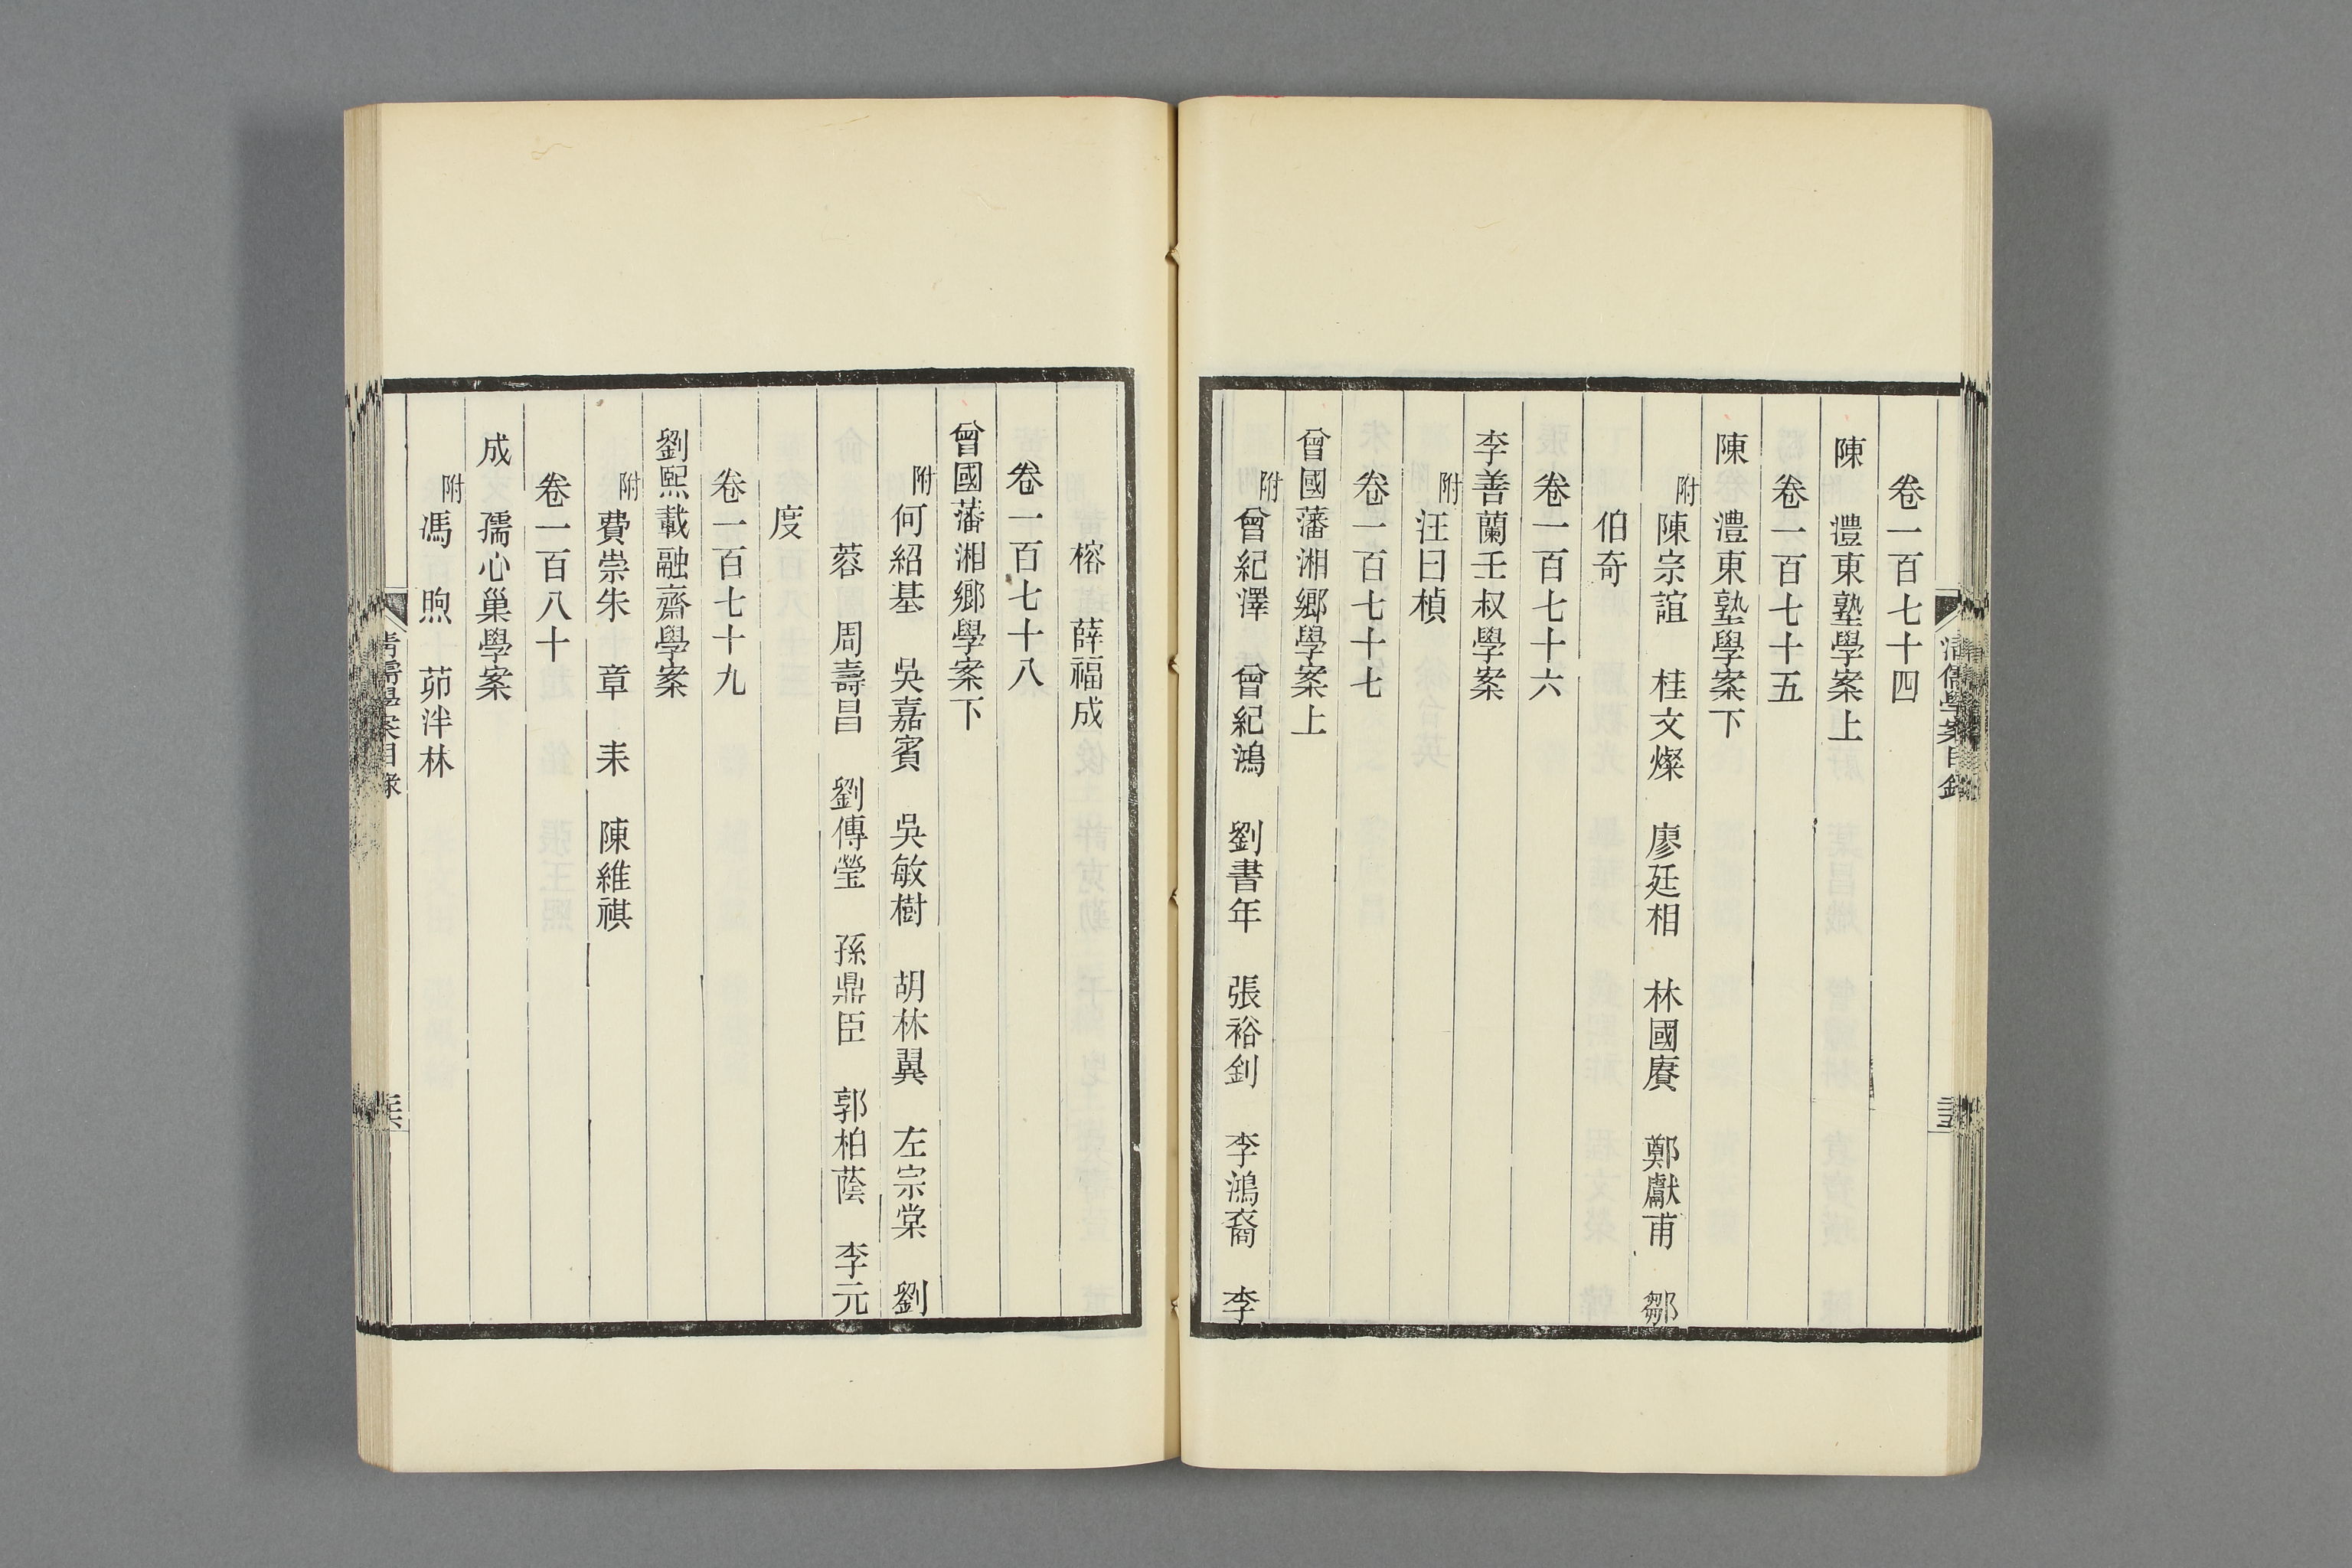 卷一百七十四
陳　澧東塾學案上
卷一百七十五
陳　澧東塾學案下
附陳宗誼　桂文燦　廖廷相　林國賡　鄭獻甫　鄒
伯奇
卷一百七十六
李善蘭壬叔學案
附汪曰楨
卷一百七十七
曾國藩湘鄉學案上
附曾紀澤　曾紀鴻　劉書年　張裕釗　李鴻裔　李
清儒學案目錄
榕　薛福成
卷一百七十八
曾國藩湘鄉學案下
附何紹基　吳嘉賓　吳敏樹　胡林翼　左宗棠　劉
蓉　周壽昌　劉傳瑩　孫鼎臣　郭柏蔭　李元
度
卷一百七十九
劉熙載融齋學案
附費崇朱　章　耒　陳維祺
卷一百八十
成　孺心巢學案
附馮　煦　茆泮林
清儒學案目錄